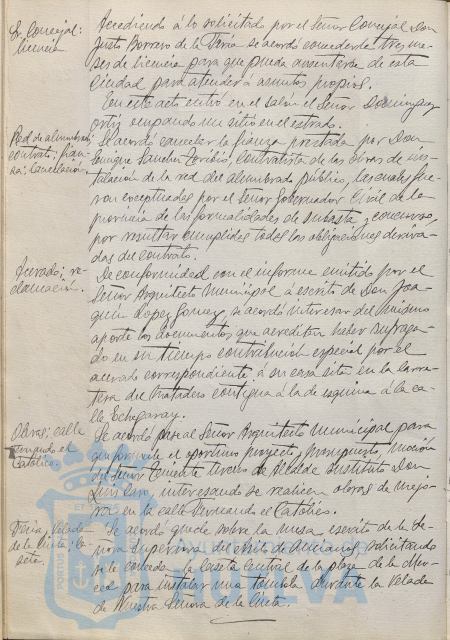 Sr. Concejal:
licencia
Accediendo á lo solicitado por el Señor Concejal Don
Justo Borrero de la Feria se acordó concederle tres me-
ses de licencia para que pueda ausentarse de esta
Ciudad para atender á asuntos propios.
En este acto entró en el salón el Señor Dominguez
ortiz, ocupando un sitio en el estrado.
Red de alumbrado;
contrato; fian-
za; cancelación
Se acordó cancelar la fianza prestada por Don
Enrique Sanchez Toribio, contratista de las obras de ins-
talación de la red del alumbrado público, las cuales fue-
ron exceptuadas por el Señor Gobernador Civil de la
provincia de las formalidades de subasta y concurso,
por resultar cumplidas todas las obligaciones deriva-
das del contrato.
re-
clamación.
De conformidad con el informe emitido por el
Señor Arquitecto Municipal á escrito de Don Joa-
quin Lopez Gomez, se acordó interesar del mismo
aporte los documentos que acrediten haber sufraga-
do en su tiempo contribución especial por el
acerado correspondiente á su casa sita en la Carre-
tera de Mataderos contigua á la de esquina á la ca-
lle Echegaray.
Obras; calle
Fernando el
Católico.
Se acordó pase al Señor Arquitecto Municipal para
que formule el oportuno proyecto y presupuesto, moción
del Señor Teniente tercero de Alcalde Instituto Don
interesando se realicen obras de mejo-
ra en la calle Fernando el Católico.
Feria; Velada
de la Cinta; ca-
seta.
Se acordó quede sobre la mesa escrito de la Se-
ñora Superiora del Asilo de Ancianos solicitando
se le conceda la Caseta Central de la plaza de la Mer-
ced para instalar una tómbola durante la Velada
de Nuestra Señora de la Cinta.
AYUNTAMIENTO DE
HUELVA